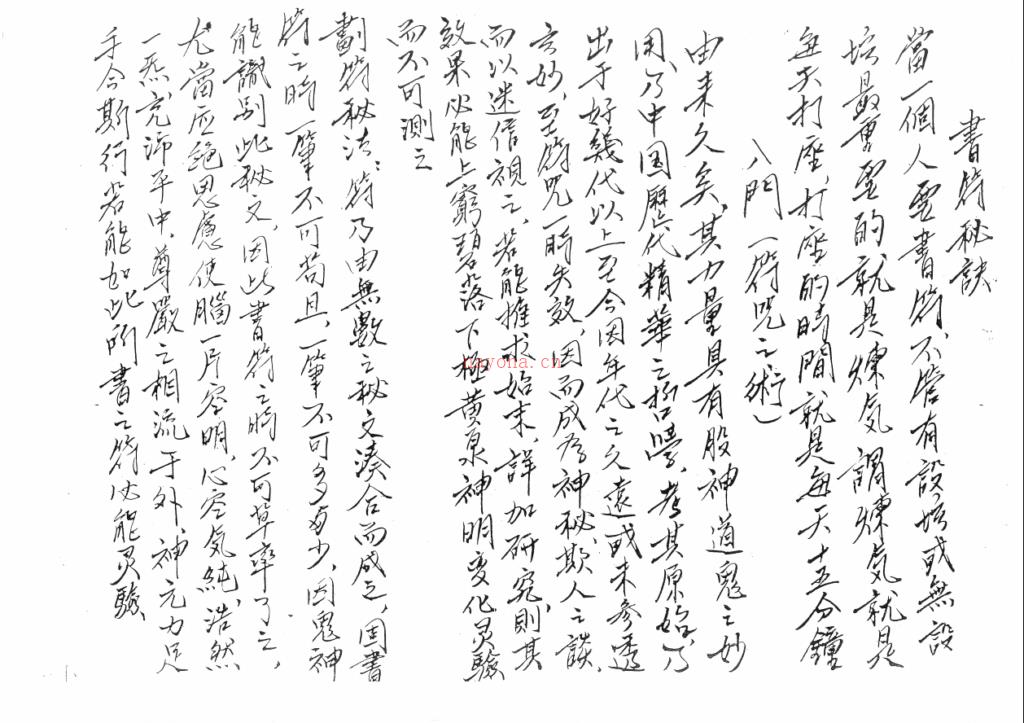 書符秘訣
當一個人要書符，不管有設坛或無設
坛最重要的就是煉気謂煉気就是
每天打座，打座的時間就是每天十五分鐘
入門（符咒之術）
由来久矣，其力量具有股神道鬼之妙
用，乃中国歷代精華之哲學，考其原始，乃
出于好幾代以上至今因年代之久遠或未參透
玄妙，至符咒一時失效，因而成為神秘，欺人之談，
而以迷信視之，若能推求始末，詳加研究，則其
效果必能上窮碧落下極黃泉神明变化灵驗
而不可測之
劃符秘法：符乃由無數之秘文湊合而成之，因書
符之時一筆不可苟且，一筆不可多少，因鬼神
能識别此秘文，因此書符之時不可草率了之，
尤當应絶思慮使腦一片空明，心空気純，浩然
一炁，充沛乎中，尊嚴之相流于外，神元力足
手合斯行若能如此所書之符必能灵驗
nayona.cn